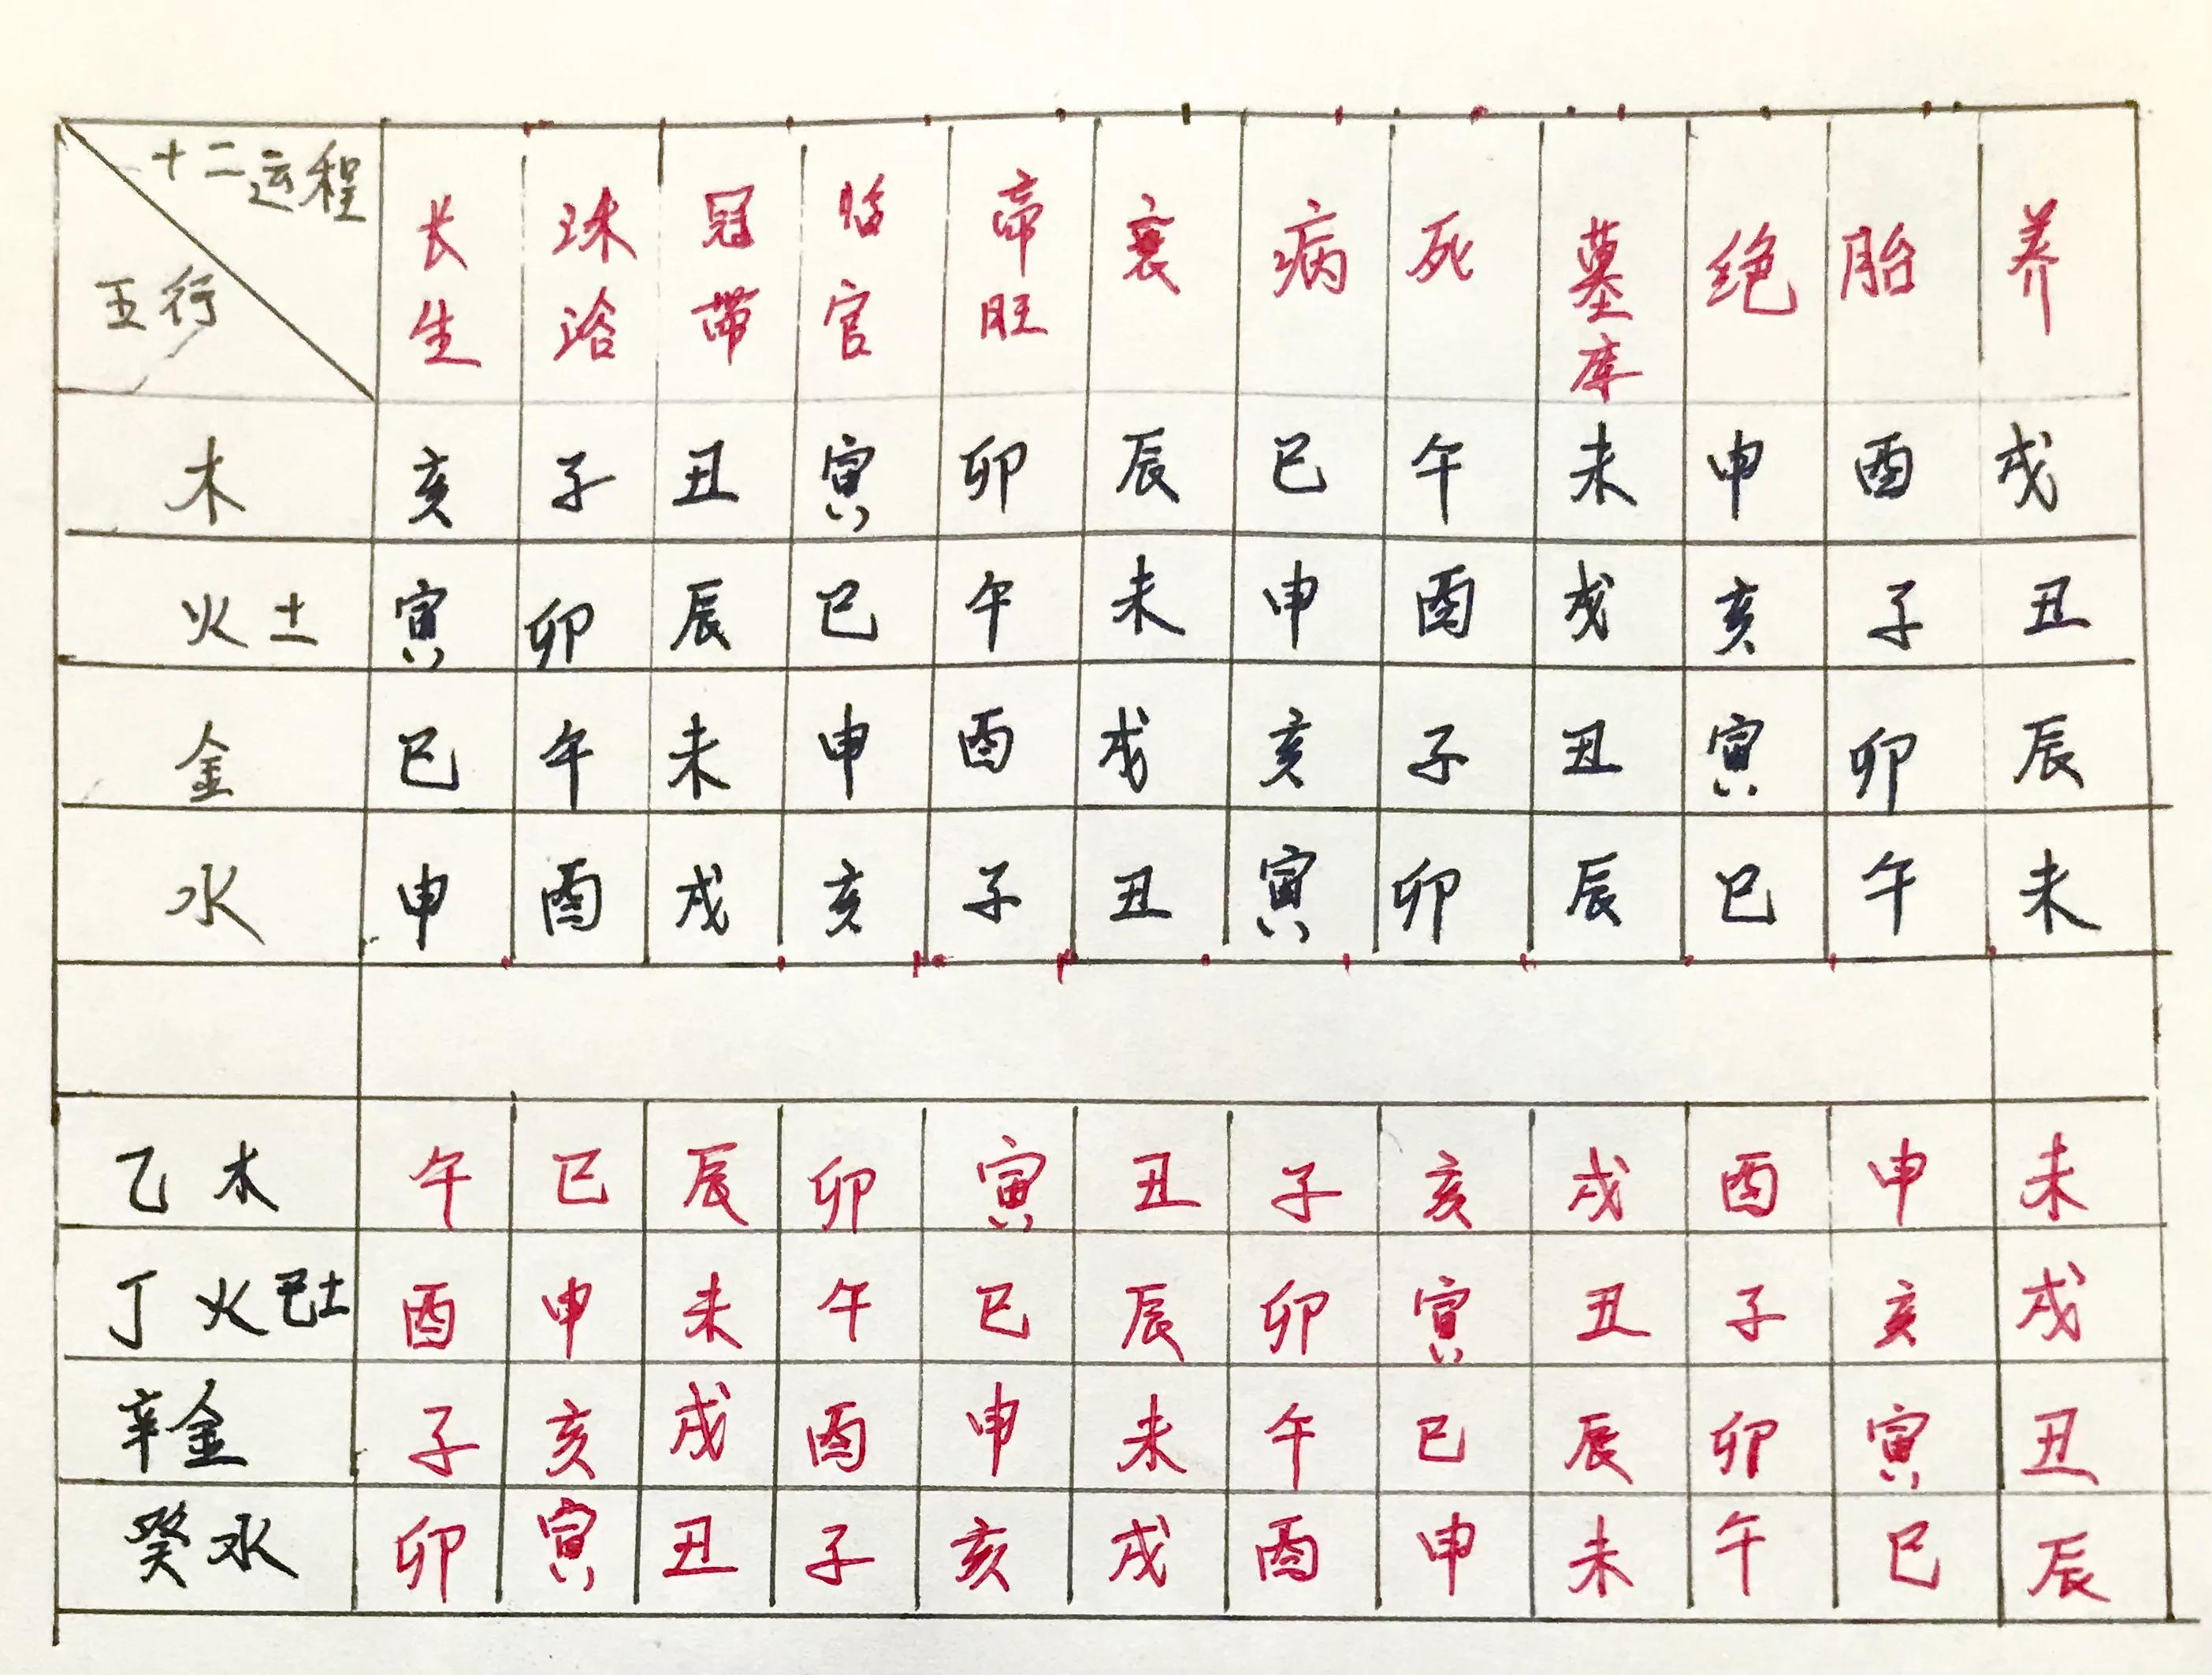 十二运程 长生 沐浴 冠带 临官 帝旺 衰 病 死 墓库 绝 胎 养
五行
木 亥 子 丑 寅 卯 辰 巳 午 未 申 酉 戌
火土 寅 卯 辰 巳 午 未 申 酉 戌 亥 子 丑
金 巳 午 未 申 酉 戌 亥 子 丑 寅 卯 辰
水 申 酉 戌 亥 子 丑 寅 卯 辰 巳 午 未
乙木 午 巳 辰 卯 寅 丑 子 亥 戌 酉 申 未
丁火己土 酉 申 未 午 巳 辰 卯 寅 丑 子 亥 戌
辛金 子 亥 戌 酉 申 未 午 巳 辰 卯 寅 丑
癸水 卯 寅 丑 子 亥 戌 酉 申 未 午 巳 辰